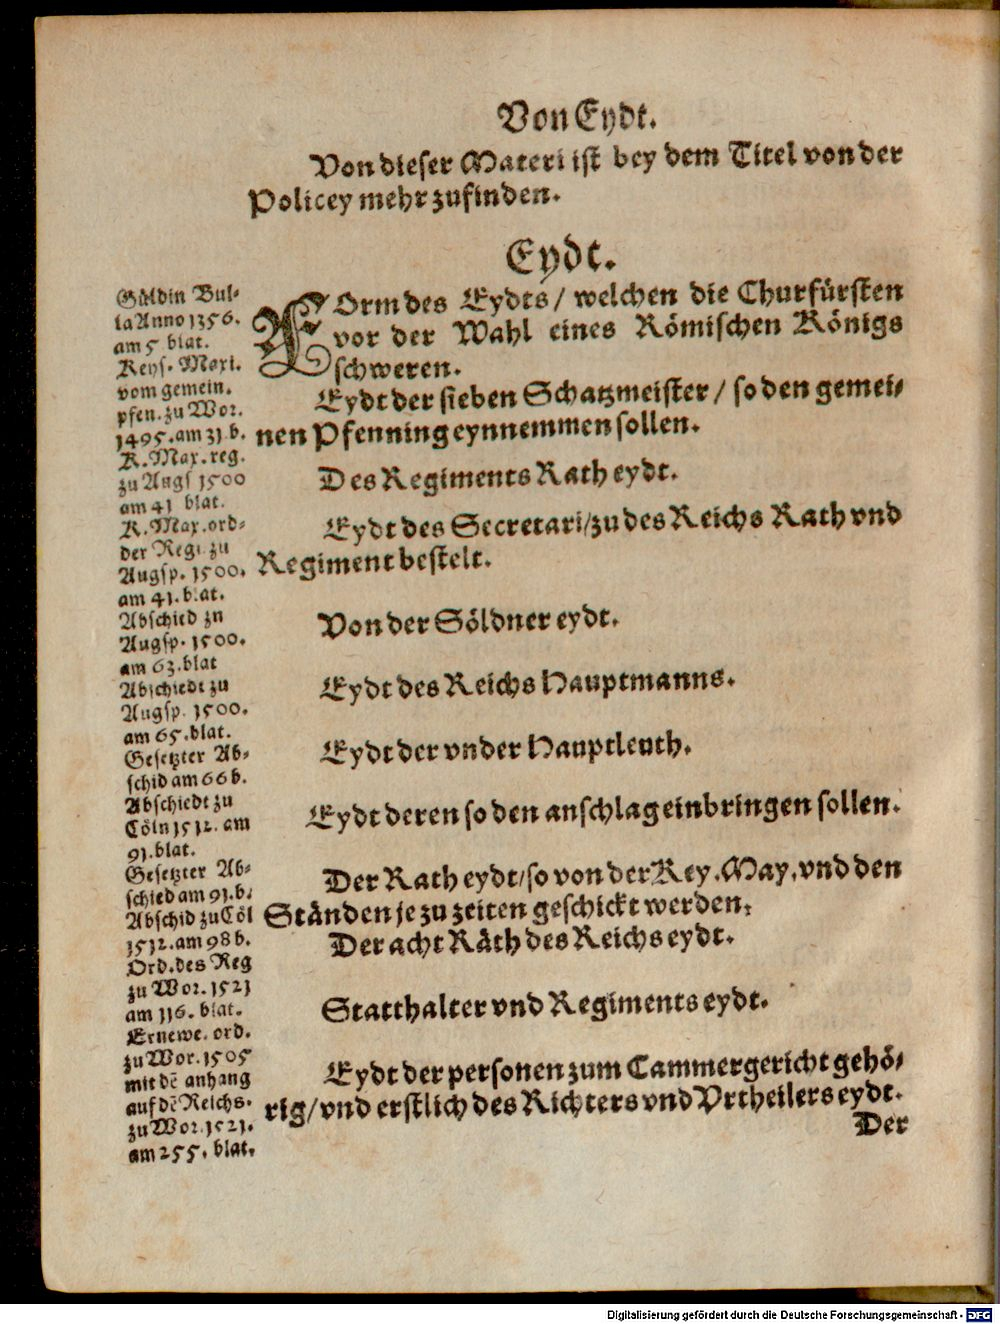 Von Eydt.
Von dieser Materi ist bey dem Titel von der
Policey mehr zufinden.
Eydt.
Güldin Bul-
la Anno 1356.
am 5 blat.
Keys. Maxi.
vom gemein.
pfen. zu Wor.
1495. am 31 b.
K. Max. reg.
zu Augs 1500
am 41 blat.
K. Max. ord-
der Regi zu
Augsp. 1500.
am 41. blat.
Abschied zu
Augsp. 1500.
am 63. blat
Abschiedt zu
Augsp. 1500.
am 65. blat.
Gesetzter Ab-
schid am 66 b.
Abschiedt zu
Cöln 1512. am
91. blat.
Gesetzter Ab-
schied am 91. b.
Abschid zu Cöl
1512. am 98 b.
Ord. des Reg
zu Wor. 1521
am 116. blat.
Ernewe. ord.
zu Wor. 1505
mit dē anhang
auf dē Reichs.
zu Wor. 1521.
am 255. blat.
FOrm des Eydts / welchen die Churfürsten
vor der Wahl eines Römischen Königs
schweren.
Eydt der sieben Schatzmeister / so den gemei-
nen Pfenning eynnemmen sollen.
Des Regiments Rath eydt.
Eydt des Secretari / zu des Reichs Rath vnd
Regiment bestelt.
Von der Söldner eydt.
Eydt des Reichs Hauptmanns.
Eydt der vnder Hauptleuth.
Eydt deren so den anschlag einbringen sollen.
Der Rath eydt / so von der Key. May. vnd den
Ständen je zu zeiten geschickt werden.
Der acht Räth des Reichs eydt.
Statthalter vnd Regiments eydt.
Eydt der personen zum Cammergericht gehö-
rig / vnd erstlich des Richters vnd Vrtheilers eydt.
Der
Digitalisierung gefördert durch die Deutsche Forschungsgemeinschaft - DFG